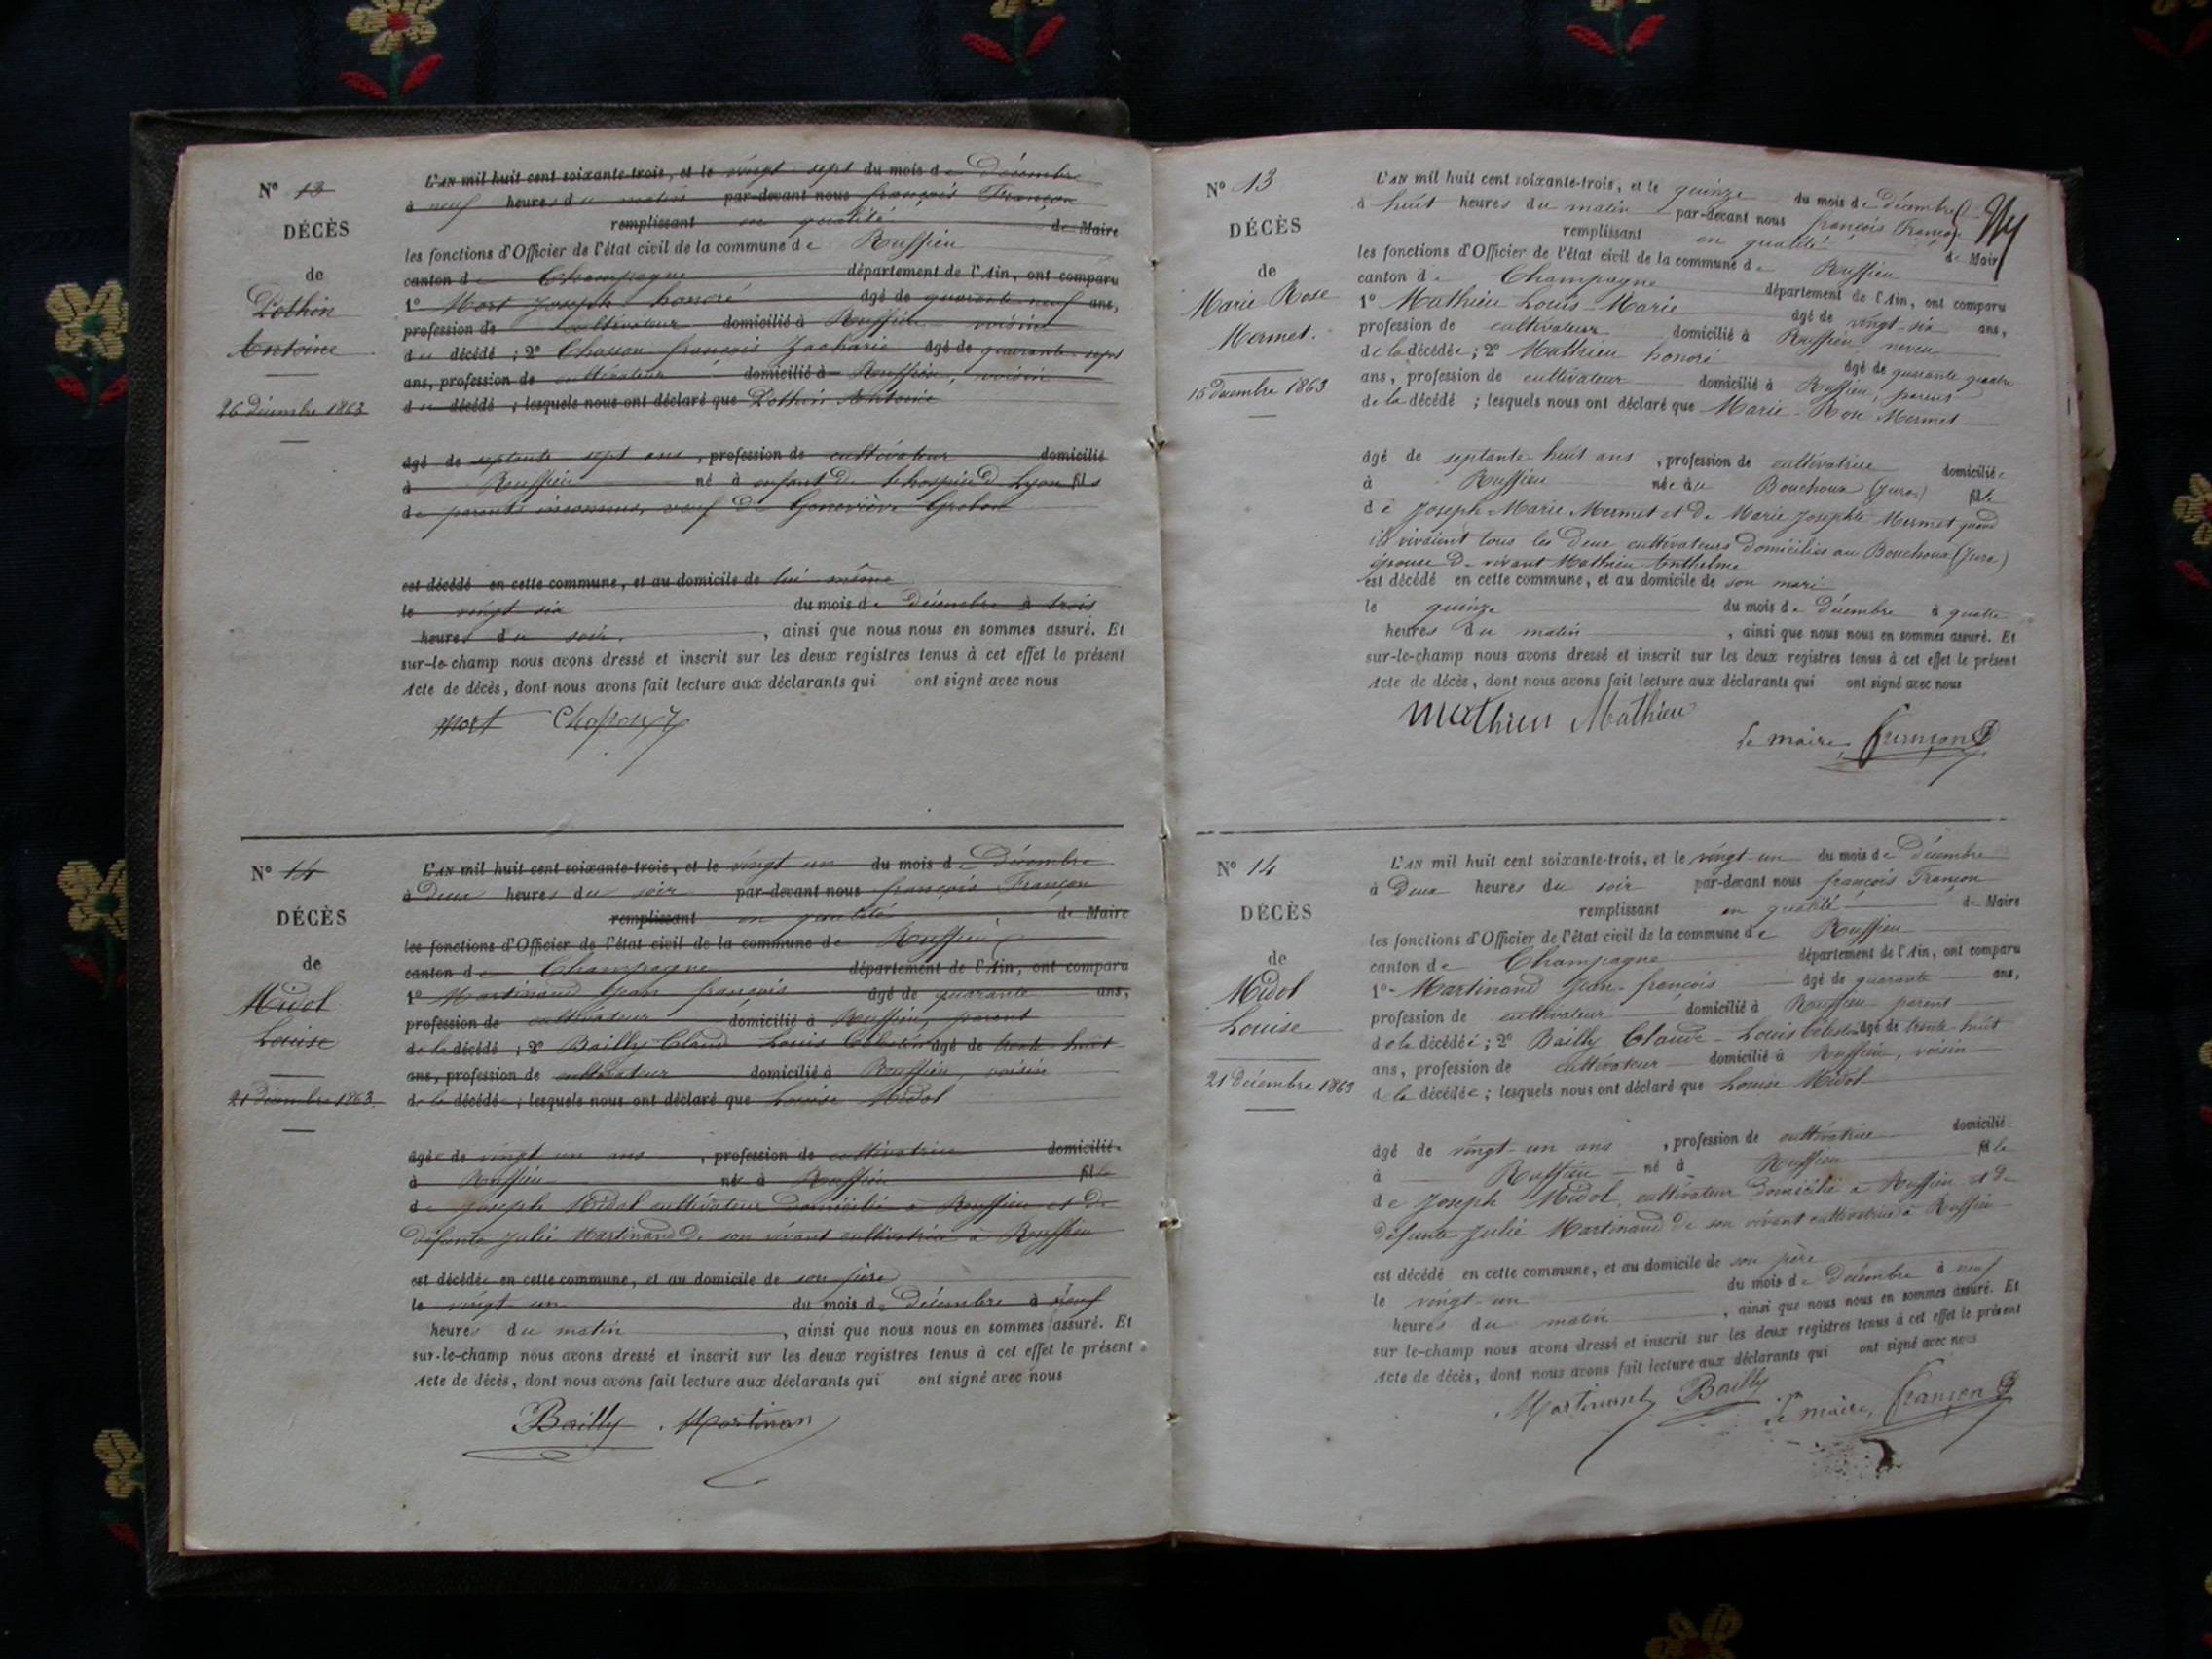 N° 13
DÉCÈS
de
Pothin
Antoine
26 décembre 1863
L'AN mil huit cent soixante-trois, et le vingt sept du mois de Décembre
à neuf heures du matin par-devant nous françois Françon
remplissant en qualité de Maire
les fonctions d'Officier de l'état civil de la commune de Ruffieu
canton de Champagne département de l'Ain, ont comparu
1° Mort Joseph honoré âgé de quarante neuf ans,
profession de cultivateur domicilié à Ruffieu voisin
du décédé ; 2° françois Zacharie âgé de quarante sept
ans, profession de cultivateur domicilié à Ruffieu, voisin
du décédé ; lesquels nous ont déclaré que Pothin Antoine
âgé de septante sept ans, profession de cultivateur domicilié
à Ruffieu né à enfant de l'hospice de Lyon fils
de parents inconnus, veuf de Geneviève
est décédé en cette commune, et au domicile de lui même
le vingt six du mois de Décembre à trois
heures du soir, ainsi que nous nous en sommes assuré. Et
sur-le-champ nous avons dressé et inscrit sur les deux registres tenus à cet effet le présent
Acte de décès, dont nous avons fait lecture aux déclarants qui ont signé avec nous
Mort
N° 14
DÉCÈS
de
Midol
Louise
21 Décembre 1863
L'AN mil huit cent soixante-trois, et le vingt un du mois de Décembre
à Deux heures du soir par-devant nous françois Françon
remplissant en qualité de Maire
les fonctions d'Officier de l'état civil de la commune de Ruffieu
canton de Champagne département de l'Ain, ont comparu
1° Martinand Jean françois âgé de quarante ans,
profession de cultivateur domicilié à Ruffieu, parent
de la décédé ; 2° Bailly Claude Louis Célestin âgé de trente huit
ans, profession de cultivateur domicilié à Ruffieu, voisin
de la décédée ; lesquels nous ont déclaré que Louise Midol
âgée de vingt un ans, profession de cultivatrice domicilié
à Ruffieu née à Ruffieu fille
de Joseph Midol cultivateur Domicilié à Ruffieu et De
Défunte Julie Martinand De son vivant cultivatrice à Ruffieu
est décédée en cette commune, et au domicile de son père
le vingt un du mois de Décembre à neuf
heures du matin, ainsi que nous nous en sommes assuré. Et
sur-le-champ nous avons dressé et inscrit sur les deux registres tenus à cet effet le présent
Acte de décès, dont nous avons fait lecture aux déclarants qui ont signé avec nous
Bailly Martinan
N° 13
DÉCÈS
de
Marie Rose
Mermet.
15 décembre 1863
L'AN mil huit cent soixante-trois, et le quinze du mois de Décembre
à huit heures du matin par-devant nous françois Françon
remplissant en qualité de Maire
les fonctions d'Officier de l'état civil de la commune de Ruffieu
canton de Champagne département de l'Ain, ont comparu
1° Mathieu Louis-Marie âgé de vingt-six ans,
profession de cultivateur domicilié à Ruffieu neveu
de la décédée ; 2° Mathieu honoré âgé de quarante quatre
ans, profession de cultivateur domicilié à Ruffieu, parens
de la décédé ; lesquels nous ont déclaré que Marie-Rose Mermet
âgé de septante huit ans, profession de cultivatrice domiciliée
à Ruffieu née au Bouchoux (Jura) fille
de Joseph-Marie Mermet et De Marie Josephte Mermet quand
ils vivaient tous les Deux cultivateurs domiciliés au Bouchoux (Jura)
épouse De vivant Mathieu Anthelme
est décédé en cette commune, et au domicile de son mari
le quinze du mois de Décembre à quatre
heures du matin, ainsi que nous nous en sommes assuré. Et
sur-le-champ nous avons dressé et inscrit sur les deux registres tenus à cet effet le présent
Acte de décès, dont nous avons fait lecture aux déclarants qui ont signé avec nous
Mathieu Mathieu
Le maire, Françon
N° 14
DÉCÈS
de
Midol
Louise
21 Décembre 1863
L'AN mil huit cent soixante-trois, et le vingt-un du mois de Décembre
à Deux heures du soir par-devant nous françois Françon
remplissant en qualité de Maire
les fonctions d'Officier de l'état civil de la commune de Ruffieu
canton de Champagne département de l'Ain, ont comparu
1° Martinand Jean-françois âgé de quarante ans,
profession de cultivateur domicilié à Ruffieu parent
de la décédée ; 2° Bailly Claude-Louis Célestin âgé de trente-huit
ans, profession de cultivateur domicilié à Ruffieu, voisin
de la décédée ; lesquels nous ont déclaré que Louise Midol
âgé de vingt-un ans, profession de cultivatrice domicilié
à Ruffieu né à Ruffieu fille
de Joseph Midol, cultivateur Domicilié à Ruffieu et De
Défunte Julie Martinand De son vivant cultivatrice à Ruffieu
est décédé en cette commune, et au domicile de son père
le vingt-un du mois de Décembre à neuf
heures du matin, ainsi que nous nous en sommes assuré. Et
sur le-champ nous avons dressé et inscrit sur les deux registres tenus à cet effet le présent
Acte de décès, dont nous avons fait lecture aux déclarants qui ont signé avec nous
Martinand Bailly
Le maire, Françon